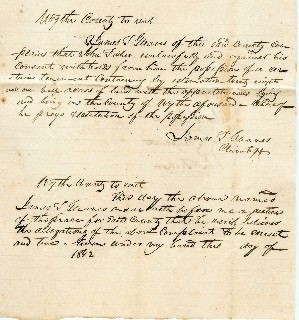 Wythe County to wit
James T Graves of this said County com-
plains that John Fisher unlawfully and against his
consent withholds from him the possession of a cer-
tain tenement containing by estimation
acres of land with the appurtenances lying
and being in the County of Wythe aforesaid
he prays restitution of the possession
James T Graves
Plaintiff
Wythe County to wit
This day the above named
James T Graves made oath before me a justice
of the peace for said County that he verily believes
the allegations of the above Complaint to be correct
and true Given under my hand this day of
1842